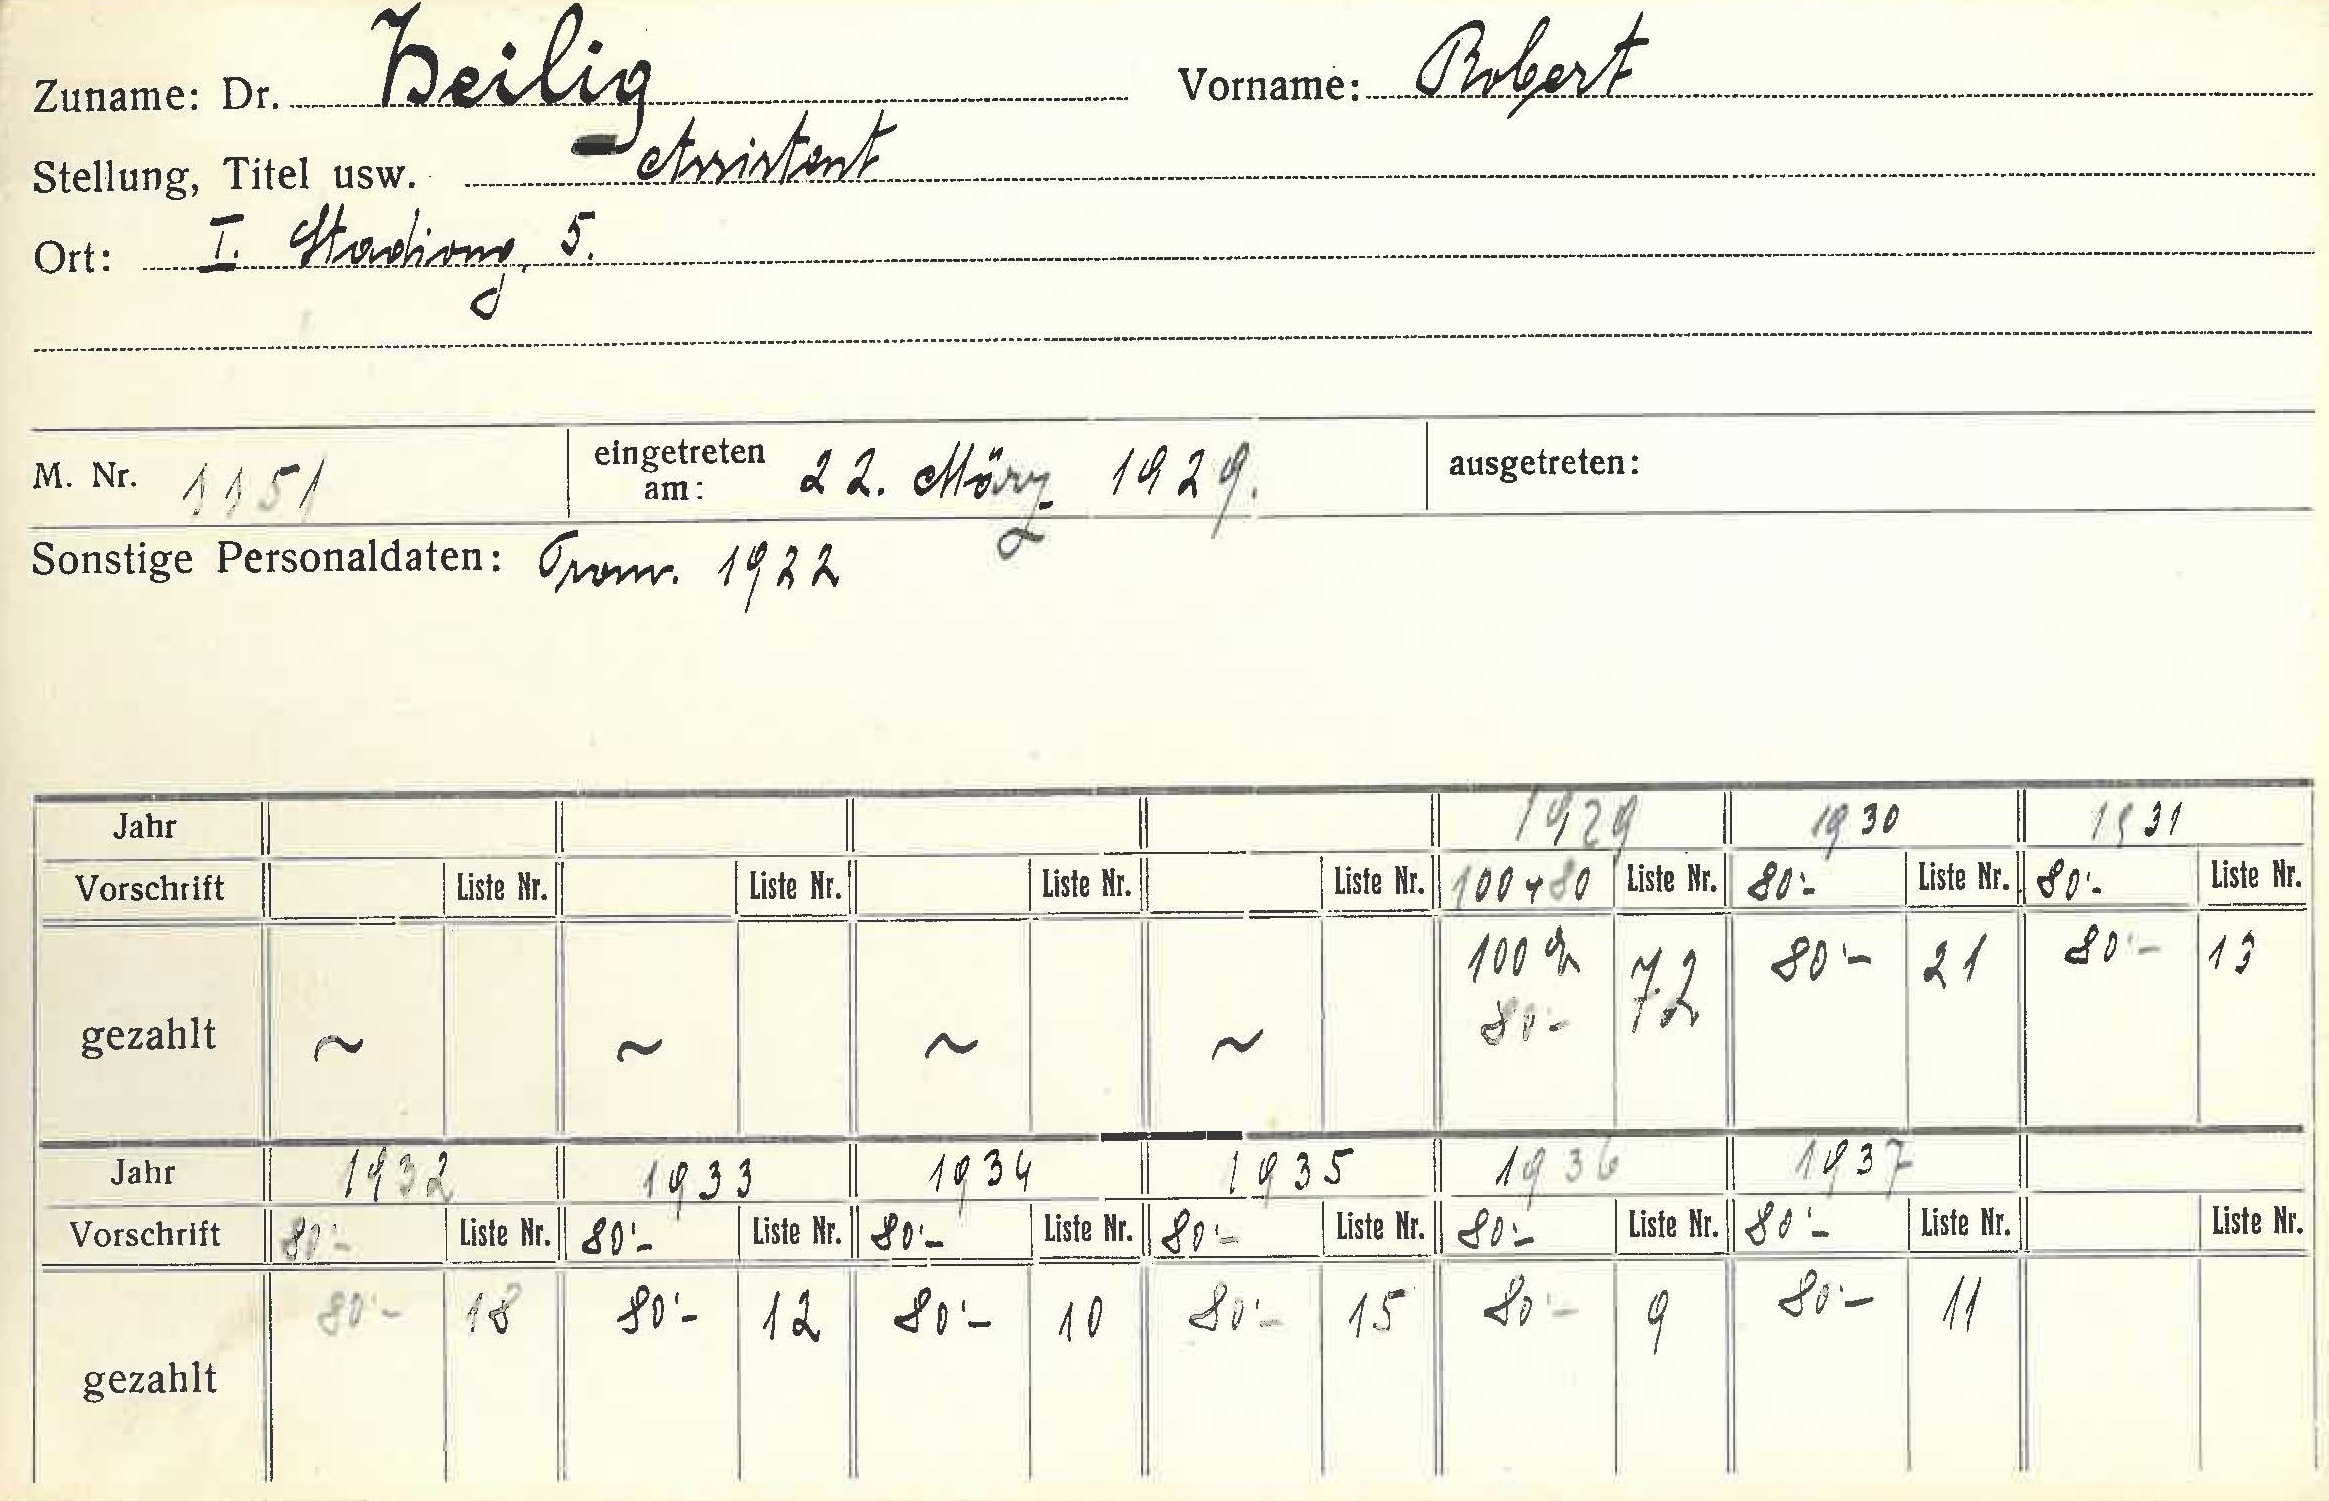 Zuname: Dr. Heilig Vorname: Robert
Stellung, Titel usw. Assistent
Ort: I. Stadiong. 5.
M. Nr. 1151 eingetreten am: 22. März 1929. ausgetreten:
Sonstige Personaldaten: Prom. 1922
Jahr 1929 1930 1931
Vorschrift Liste Nr. Liste Nr. Liste Nr. Liste Nr. 100 + 80 Liste Nr. 80'- Liste Nr. 80'- Liste Nr.
100 72 80'- 21 80'- 13
gezahlt ~ ~ ~ ~ 80'- 72
Jahr 1932 1933 1934 1935 1936 1937
Vorschrift 80'- Liste Nr. 80'- Liste Nr. 80'- Liste Nr. 80'- Liste Nr. 80'- Liste Nr. 80'- Liste Nr. Liste Nr.
gezahlt 80'- 18 80'- 12 80'- 10 80'- 15 80'- 9 80'- 11